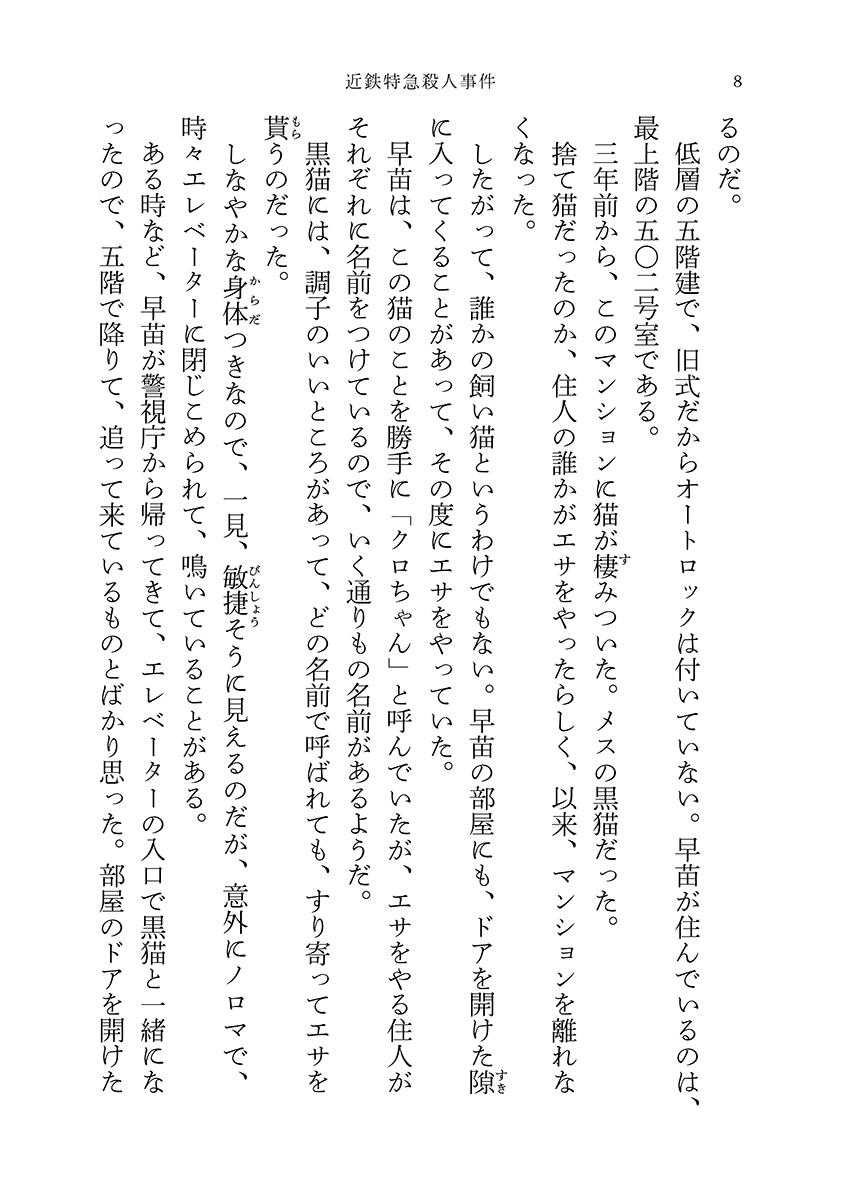 近鉄特急殺人事件
8
るのだ。
低層の五階建で、旧式だからオートロックは付いていない。早苗が住んでいるのは、
最上階の五〇二号室である。
三年前から、このマンションに猫が棲みついた。メスの黒猫だった。
捨て猫だったのか、住人の誰かがエサをやったらしく、以来、マンションを離れな
くなった。
したがって、誰かの飼い猫というわけでもない。早苗の部屋にも、ドアを開けた隙
に入ってくることがあって、その度にエサをやっていた。
早苗は、この猫のことを勝手に「クロちゃん」と呼んでいたが、エサをやる住人が
それぞれに名前をつけているので、いく通りもの名前があるようだ。
黒猫には、調子のいいところがあって、どの名前で呼ばれても、すり寄ってエサを
貰うのだった。
しなやかな身体つきなので、一見、敏捷そうに見えるのだが、意外にノロマで、
時々エレベーターに閉じこめられて、鳴いていることがある。
ある時など、早苗が警視庁から帰ってきて、エレベーターの入口で黒猫と一緒にな
ったので、五階で降りて、追って来ているものとばかり思った。部屋のドアを開けた